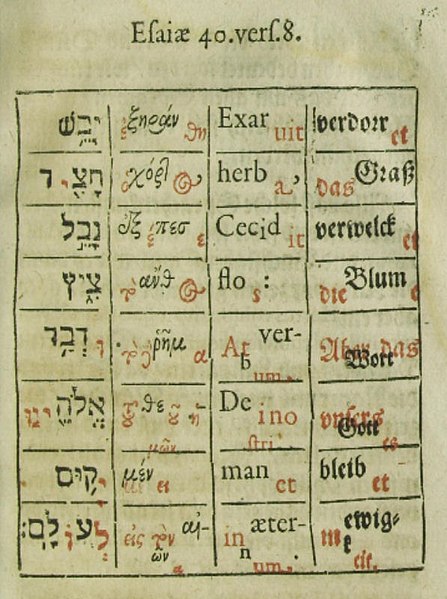 Esaiæ 40.vers.8.
יָבֵ֥שׁ ἐξηράνθη Exaruit verdorret
חָצִ֖יר ὁ χόρτος, herba, das Graß
נָבֵ֣ל ἐξέπεσε Cecidit verwelcket
צִ֑יץ τὸ ἄνθος flos: die Blume
וּדְבַר τὸ ῥῆμα At verbum Aber das Wort
אֱלֹהֵ֖ינוּ τοῦ θεοῦ ἡμῶν Dei nostri unsers Gottes
יָק֥וּם μένει manet bleibet
לְעוֹלָֽם׃ εἰς τὸν αἰῶνα in æternum. in ewigkeit.